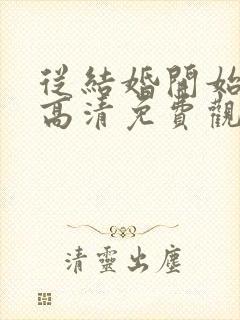 從結婚開始
高清免費觀
清靈出塵